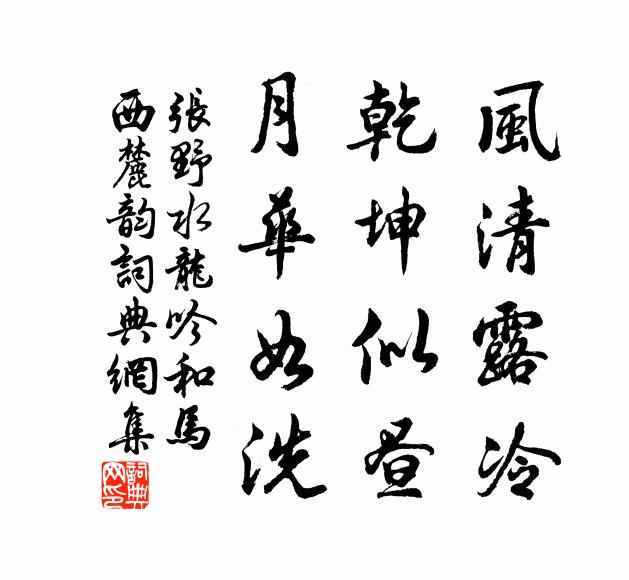 風清露冷
乾坤似晝
月華如洗
張野水龍吟和馬
西麓韵詞典網集
詞典網印